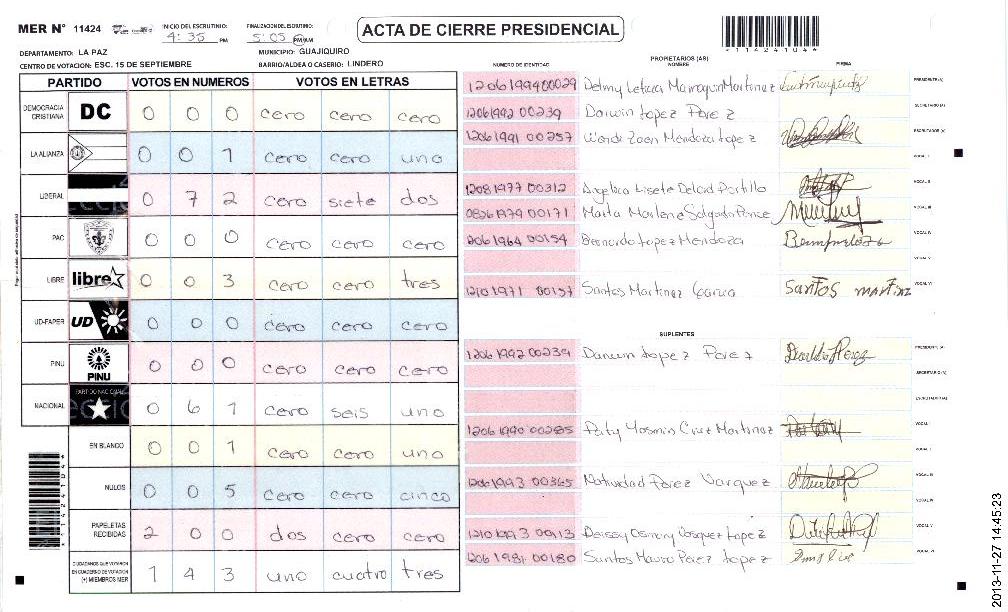 MER N° 11424
INICIO DEL ESCRUTINIO:
4:35 PM
FINALIZACION DEL ESCRUTINIO:
5:05 PM/AM
ACTA DE CIERRE PRESIDENCIAL
*114241044*
DEPARTAMENTO: LA PAZ
MUNICIPIO: GUAJIQUIRO
CENTRO DE VOTACION: ESC. 15 DE SEPTIEMBRE
BARRIO/ALDEA O CASERIO: LINDERO
PARTIDO VOTOS EN NUMEROS VOTOS EN LETRAS
DEMOCRACIA CRISTIANA DC 0 0 0 cero cero cero
LA ALIANZA 0 0 1 cero cero uno
LIBERAL 0 7 2 cero siete dos
PAC 0 0 0 cero cero cero
LIBRE libre 0 0 3 cero cero tres
UD-FAPER UD 0 0 0 cero cero cero
PINU PINU 0 0 0 cero cero cero
NACIONAL PARTIDO NACIONAL 0 6 1 cero seis uno
EN BLANCO 0 0 1 cero cero uno
NULOS 0 0 5 cero cero cinco
PAPELETAS RECIBIDAS 2 0 0 dos cero cero
CIUDADANOS QUE VOTARON EN CUADERNO DE VOTACION (+) MIEMBROS MER 1 4 3 uno cuatro tres
PROPIETARIOS (AS)
NUMERO DE IDENTIDAD NOMBRE FIRMA
1206199400029 Delmy Leticia Marroquin Martinez PRESIDENTE (A)
1206 1992 00239 Darwin Lopez Perez SECRETARIO (A)
1206 1991 00257 Mendoza Lopez ESCRUTADOR (A)
VOCAL I
1208 1977 00312 Angelica Lisete Delcid Portillo VOCAL II
0826 1979 00171 Marta Marlene Salgado Ponce VOCAL III
1206 1964 00154 Bernardo Lopez Mendoza VOCAL IV
VOCAL V
1210 1971 00157 Santos Martinez Garcia Santos Martinz VOCAL VI
SUPLENTES
1206 1992 00239 Darwin Lopez Perez PRESIDENTE (A)
SECRETARIO (A)
ESCRUTADOR (A)
1206 1990 00285 Paty Yosmin Cruz Martinez VOCAL I
VOCAL II
1206 1993 00365 Natividad Perez Vasquez VOCAL III
VOCAL IV
1210 1993 00913 Deissy Osmary Vasquez Lopez VOCAL V
1206 1981 00180 Santos Mauro Perez Lopez VOCAL VI
2013-11-27 14:45:23